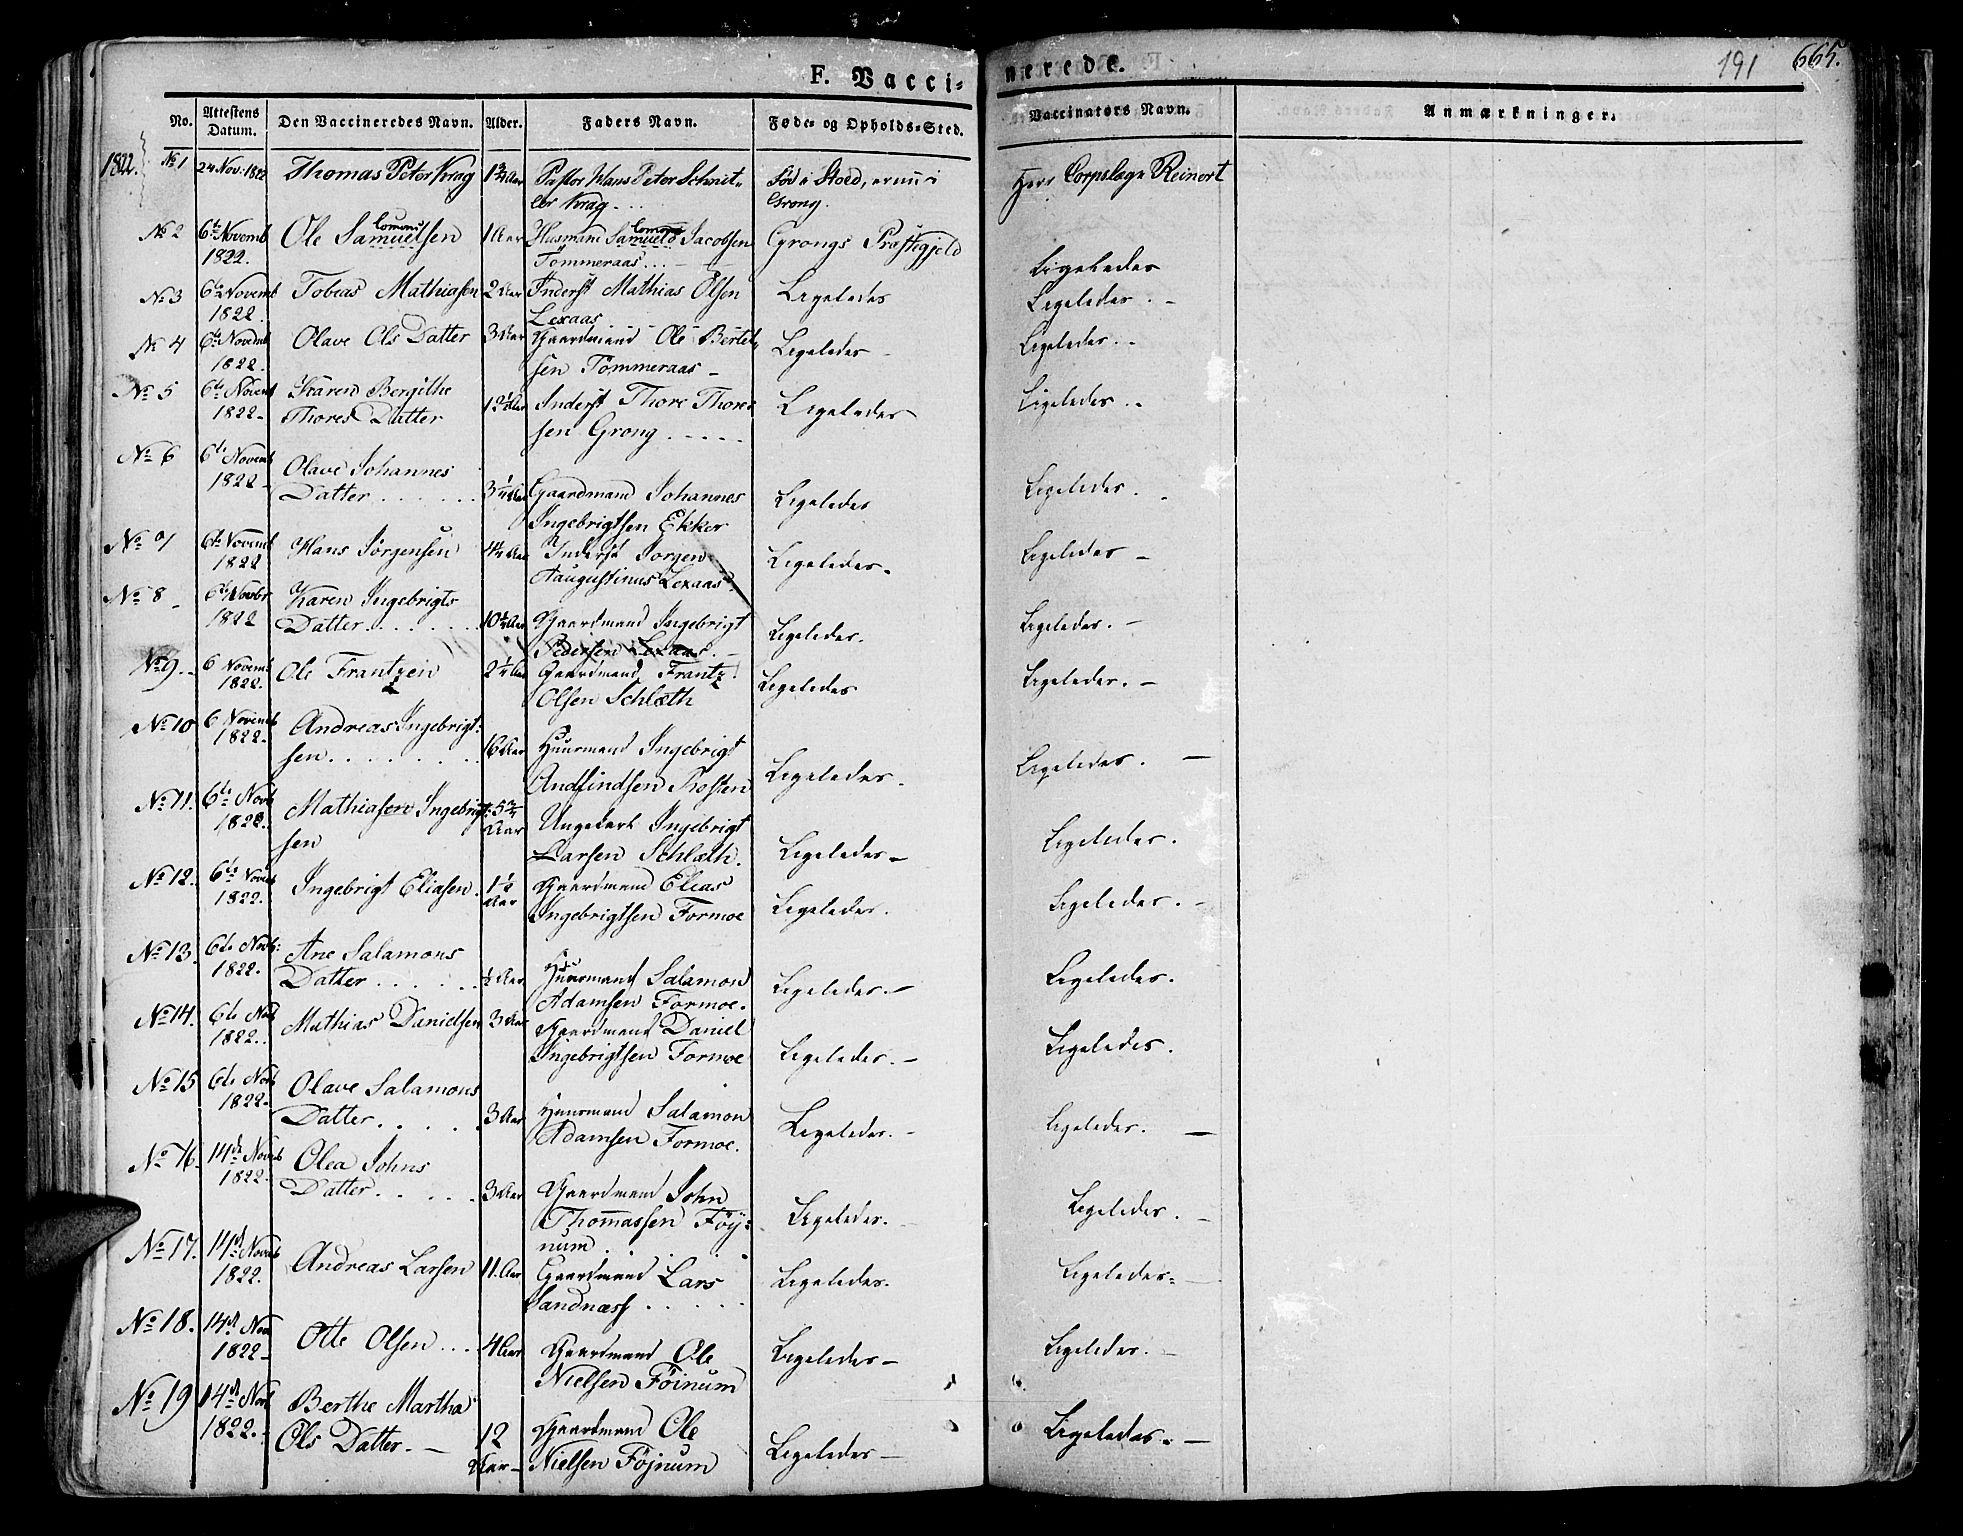 F. Vaccinerede.
191 665.
No. Attestens Datum. Den Vaccineredes Navn. Alder. Faders Navn. Føde- og Opholds-Sted. Vaccinators Navn. Anmærkninger.
1822. No 1 24 Nov: 1822 Thomas Peter Krag 1¾ Aar Pastor Hans Peter Schnit- Fød i Stoed, er nu i Herr Corpslæge Reinert
ler Krag... Grong.
No 2 6te Novemb Ole Samuelsen 1 Aar Husmand Samuel Jacobsen Grongs Præstegjeld Ligeledes
1822. Tømmeraas...
No 3 6te Novemb Tobias Mathiasen 2 Aar Inderst Mathias Olsen Ligeledes Ligeledes. -
1822. Lexaas
No 4 6te Novemb Olave Ols Datter 3 Aar Gaardmand Ole Bertel- Ligeledes - Ligeledes. -
1822. sen Tømmeraas -
No 5 6te Novemb Karen Bergithe 1½ Aar Inderst Thore Thore- Ligeledes Ligeledes. -
1822 - Thores Datter sen Grong.....
No 6 6te Novemb Olave Johannes
1822 - Datter...... 3¼ Aar Gaardmand Johannes Ligeledes Ligeledes. -
Ingebrigtsen Ekker
No 7 6te Novemb Hans Jørgensen 4¼ Aar Inderst Jørgen Ligeledes. Ligeledes -
1822 Augustinus Lexaas
No 8 6te Novbr Karen Ingebrigts
1822 Datter...... 10½ Aar Gaardmand Ingebrigt Ligeledes. Ligeledes. -
Pedersen Lexaas. -
No 9. 6 Novemb Ole Frantzen 2¼ Aar Gaardmand Frantz Ligeledes Ligeledes. -
1822. Olsen Schlæth
No 10 6 Novemb Andreas Ingebrigt-
1822. sen......... 16 Aar Huusmand Ingebrigt Ligeledes. Ligeledes. -
Andfindsen Rosten
No 11. 6te Novb Mathiasen Ingebrigt- 5¾ Aar Ungekarl Ingebrigt
1822. sen Larsen Schlæth. Ligeledes - Ligeledes.
No 12. 6te Novb Ingebrigt Eliasen. 1½ Aar Gaardmand Elias
1822. Ingebrigtsen Formoe Ligeledes. Ligeledes. -
No 13. 6te Novb: Ane Salamons
1822. Datter...... ½ Aar Huusmand Salamon Ligeledes. - Ligeledes.
Adamsen Formoe.
No 14. 6te Nov Mathias Danielsen 3 Aar Gaardmand Daniel
1822. Ingebrigtsen Formoe Ligeledes. - Ligeledes.
No 15 6te Nov Olave Salamons
1822. Datter...... 3 Aar Huusmand Salamon Ligeledes. - Ligeledes. -
Adamsen Formoe.
No 16. 14de Novemb Olea Johns
1822. Datter...... 3 Aar Gaardmand John Ligeledes. Ligeledes. -
Thomassen Føÿ-
num....
No 17. 14de Novemb Andreas Larsen 11. Aar Gaardmand Lars Ligeledes. Ligeledes. -
1822. Sandnæss.....
No 18. 14de Nov Otte Olsen... 4 Aar Gaardmand Ole Ligeledes - Ligeledes. -
1822 - Nielsen Føinum
No 19 14de Nov Berthe Martha
1822. Ols Datter. - 12 Aar - Gaardmand Ole Ligeledes - Ligeledes. -
Nielsen Føjnum